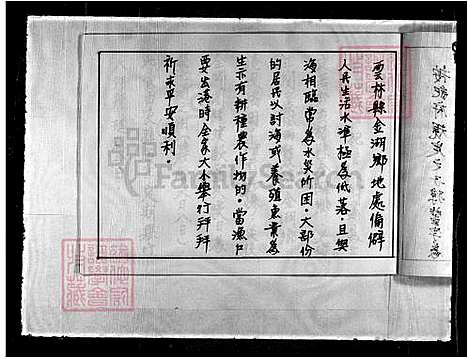 雲林縣金湖鄉地處偏僻
人民生活水準極為低落。且與
海相臨常為水災所困。大部份
的居民以討海或養殖魚業為
生亦有耕種農作物的。當漁戶
要出港時全家大小舉行拜拜
祈求平安順利。
FamilySearch